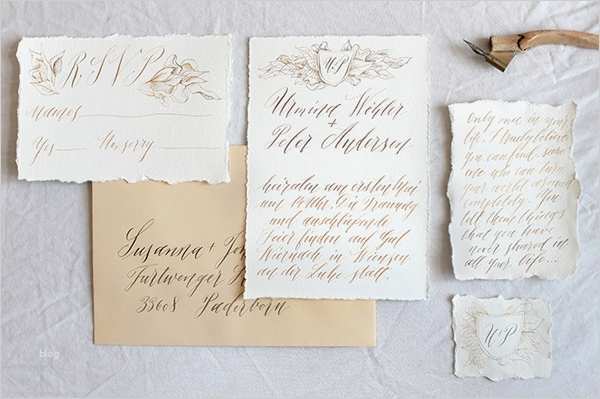 RSVP
Names
Yes No, sorry
W P
Wöhler
+
Peter Andersen
heiraten am ersten Mai
um 14 Uhr. Die Trauung
und anschließende
Feier finden auf Gut
in
an der Luhe statt.
Susanna +
Furtwenger
33608 Paderborn
Only once in your
life, I truly believe
you can find some
one who can turn
your world around
completely. You
tell them things
that you have
never shared in
all your life...
W P
blog